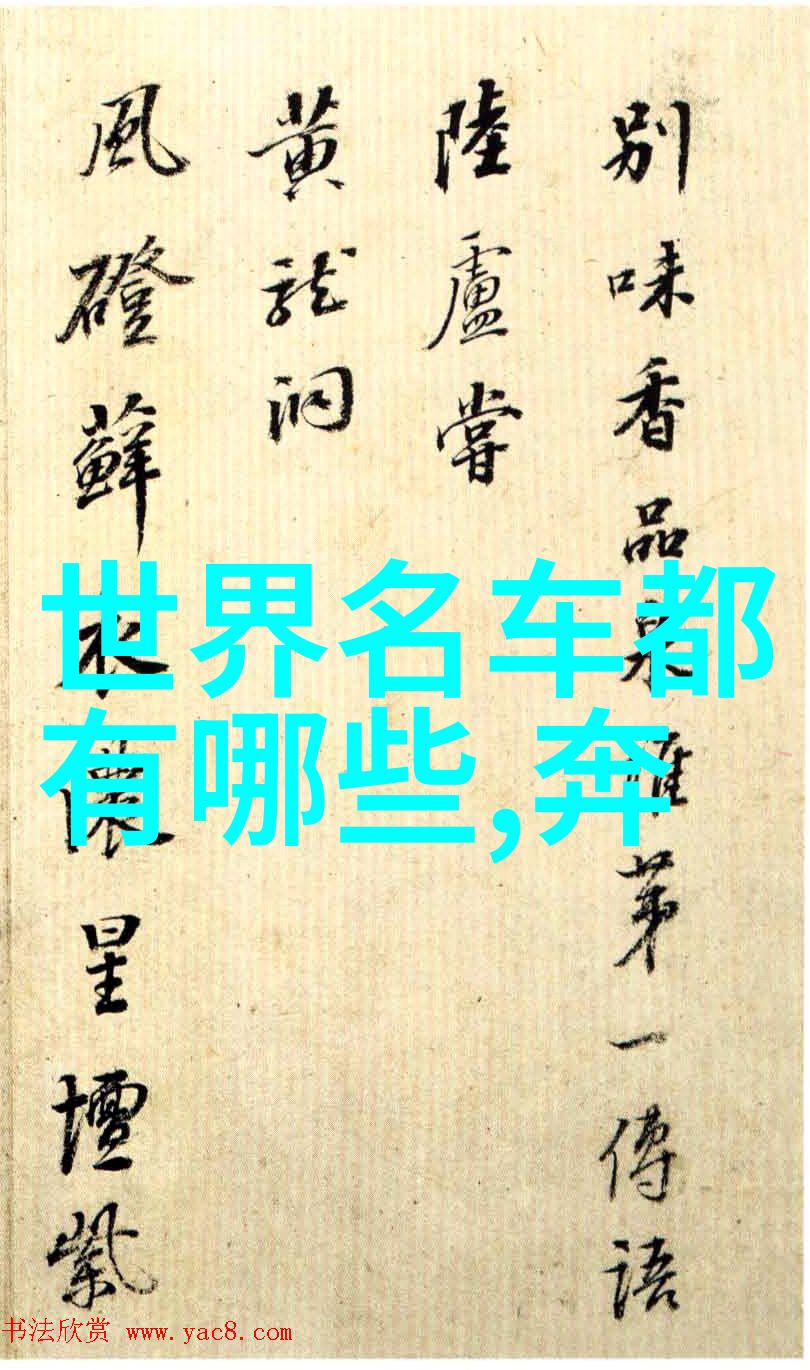 别味香品泉唯苐一傳語
陸盧嘗
黄龍洞
風磴蘚衣濃星壇紫
世界名车都
有哪些,奔
书法欣赏 www.yac8.com